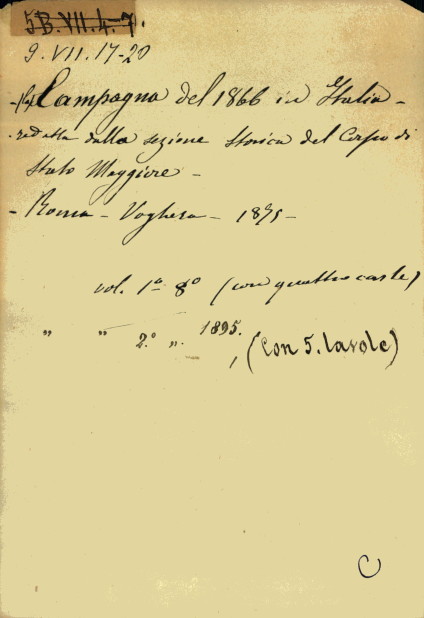 5B.VII.4-7.
9. VII. 17-20
(La) Campagna del 1866 in Italia -
redatta dalla sezione storica del Corpo di
Stato Maggiore -
- Roma - Voghera - 1875 -
vol. 1º 8º (con quattro carte)
" " 2.º ". 1895. (Con 5. tavole)
C